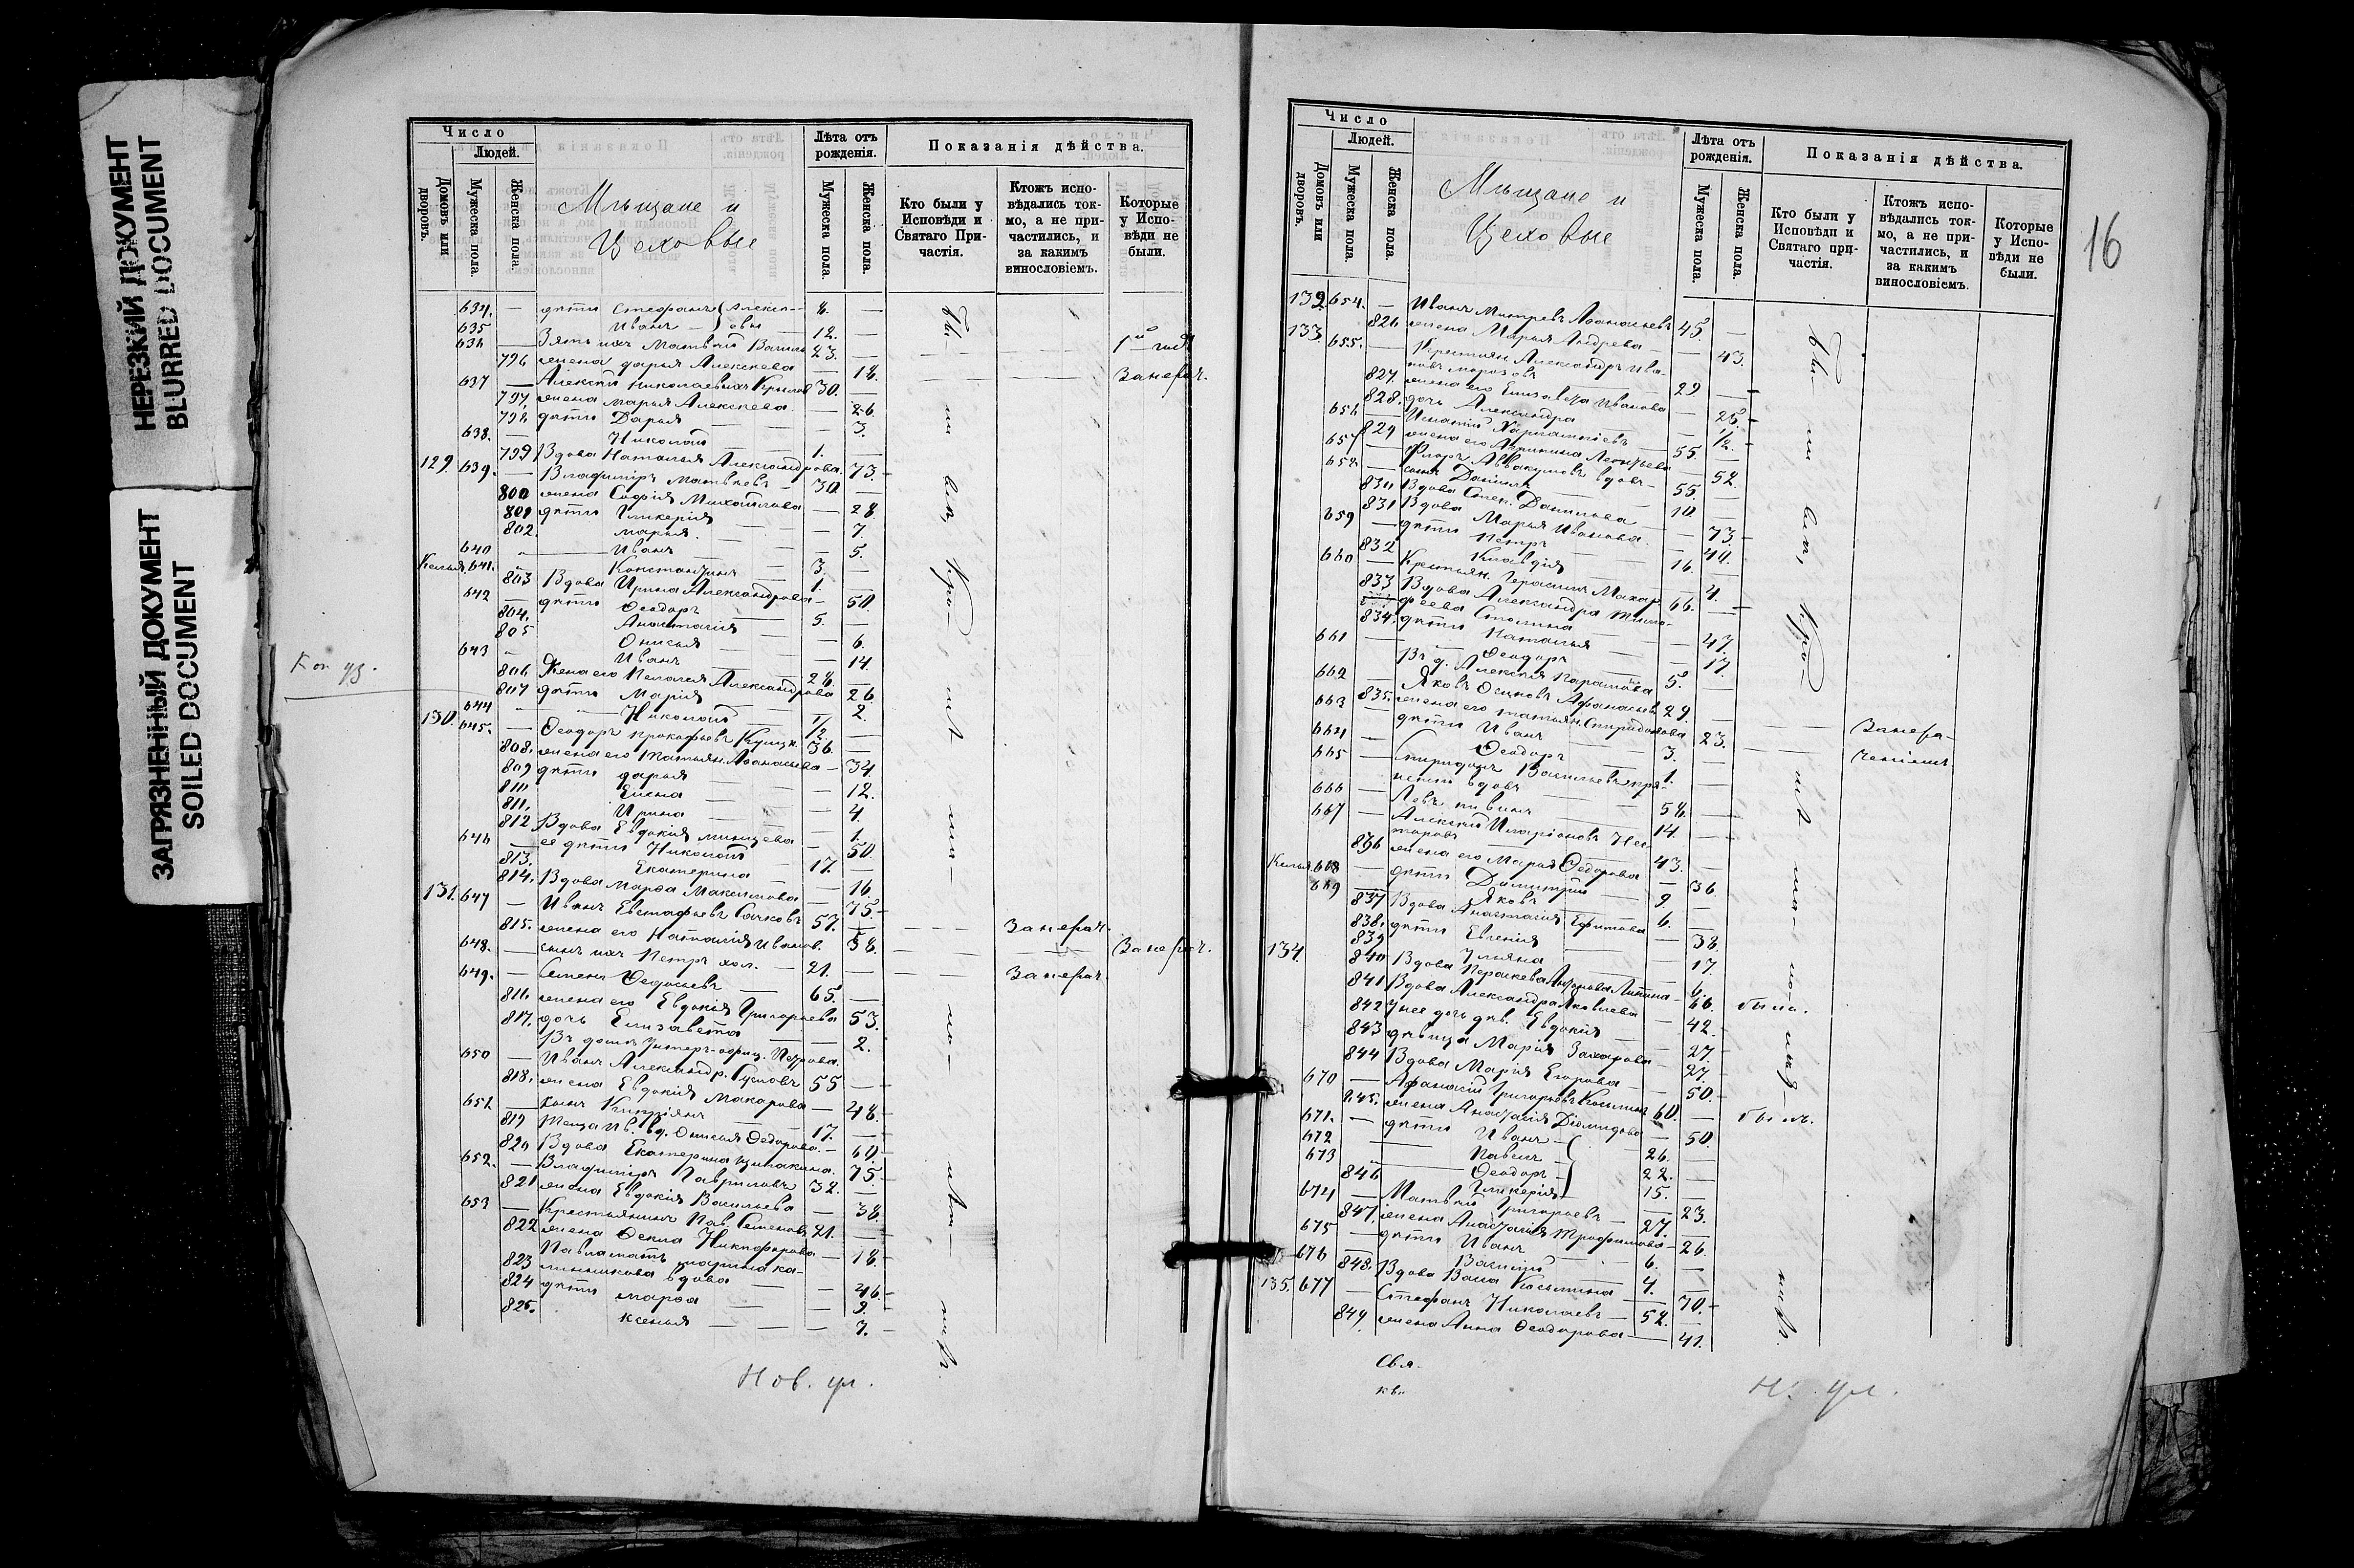 НЕРЕЗКИЙ ДОКУМЕНТ
BLURRED DOCUMENT
ЗАГРЯЗНЕННЫЙ ДОКУМЕНТ
SOILED DOCUMENT
Число
Людей.
Домовъ или дворовъ.
Мужеска пола.
Женска пола.
Мѣщане и
Цеховые
Лѣта отъ рожденія.
Мужеска пола.
Женска пола.
Показанія дѣйства.
Кто были у Исповѣди и Святаго Причастія.
Ктожъ исповѣдались токмо, а не причастились, и за какимъ винословіемъ.
Которые у Исповѣди не были.
634. — дѣти Стефанъ 8. —
635 Иванъ 12. —
636 — Зять ихъ Матвѣй 23. —
796 жена Дарья Алексѣева — 18.
637 — Алексѣй Николаевъ Крылов 30. — Занерач.
797, жена Марья Алексѣева — 26
798 дѣти Дарья — 3.
638. — Николай 1. —
799 Вдова Наталья Александрова. 73.
129. 639. — Владиміръ Матвѣевъ 30. —
800 жена Софія Михайлова — 28
801 дѣти Гликерія — 7.
802. Марья — 5.
640 Иванъ 3. —
Келья. 641. Константинъ 1. —
803 Вдова Ирина Александрова 50
642 — дѣти Ѳеодоръ 5. —
804. Анастасія — 6.
805 Онисья — 14.
643 Иванъ 28. —
806 Жена его Пелагея Александрова 26
807 дѣти Марія — 2.
Кон уз.
644 Николай 1/2. —
130. 645. — Ѳеодоръ Прокофьевъ 36. —
808. жена его Татьян. Аѳанасьева 34.
809 дѣти Дарья — 12.
810 Елена — 4.
811. Ирина — 1.
812 Вдова Евдокія 50.
646 — ее дѣти Николай 17. —
813. Екатерина — 16
814. Вдова Марѳа Максимова 75.
131. 647 — Иванъ Евстафьевъ Сачковъ 57. — Занерач.
815. жена его Наталія Иванов. 58. Занерач.
648. — сынъ ихъ Петръ хол. 21. — Занерач.
649. — Семенъ Ѳедосьевъ 65. —
816. жена его Евдокія Григорьева 53.
817. дочь Елизавета — 2.
Въ домѣ Унтеръ-офиц. Петрова.
650 — Иванъ Александр. Гусловъ 55 —
818. жена Евдокія Макарова — 48.
651 — сынъ Кипріянъ 17. —
819 Теща Ив. вд. Онисья Ѳедорова. — 60.
820 Вдова Екатерина 75.
652. — Владиміръ Гавриловъ 32. —
821 жена Евдокія Васильева — 38.
653 — Крестьянинъ Пав. Семеновъ 21. —
822 жена Ѳекла Никифорова — 18.
Павла мать Марина Ка-
823 линникова вдова — 46.
824 дѣти Марѳа — 9.
825. Ксенья — 7.
Нов. ул.
16
Число
Людей.
Домовъ или дворовъ.
Мужеска пола.
Женска пола.
Мѣщане и
Цеховые
Лѣта отъ рожденія.
Мужеска пола.
Женска пола.
Показанія дѣйства.
Кто были у Исповѣди и Святаго причастія.
Ктожъ исповѣдались токмо, а не причастились, и за какимъ винословіемъ.
Которые у Исповѣди не были.
132. 654. — Иванъ Митревъ Аѳанасьевъ 45. —
826 жена Марья Андрева — 43.
133. 655. — Крестьян. Александръ Ива-
новъ Морозовъ 29 —
827. жена его Елизавета Иванова 25.
828. дочь Александра — 1/2.
656 — Игнатій Харлампіевъ 55. —
829 жена его Акулина Леонтьева 52.
657 — Флоръ Аввакумовъ вдовъ 55. —
658 — сынъ Даніилъ 10. —
830 Вдова Степ. Данилова — 73.
831 Вдова Марья Иванова. — 40.
659 — дѣти Петръ 16. —
832 Клавдія — 4.
660 — Крестьян. Герасимъ Макар. 66. —
833 Вдова Александра Тимо-
феева Столина 47.
834. дѣти Наталья — 17.
661 Ѳеодоръ 5. —
662 — Яковъ Осиповъ Аѳанасьев. 29. — Занера-
835. жена его Татьян. Спиридонова 23. ченіемъ
663 — дѣти Иванъ 3. —
664 — Ѳеодоръ 1. —
665 — Спиридонъ Васильевъ
вдовъ 58. —
666 — Левъ 14. —
667 — Алексѣй Иларіоновъ Нес-
теровъ 43. —
836 жена его Марья Ѳедорова — 36
Келья 668 — дѣти Димитрій 9. —
669 — Яковъ 6. —
837 Вдова Анастасія Ефимова 38.
838. дѣти Евгенія — 17.
839 Ульяна — 6.
134. 840 Вдова Параскева 66. была.
841 Вдова Александра Яковлева 42.
842 У нее дочь дѣв. Евдокія — 27.
843 дѣвица Марія Захарова — 27.
844 Вдова Марія Егорова — 50.
670 — Аѳанасій Григорьевъ Косминъ 60. — былъ.
845. жена Анастасія Діомидова 50.
671. — дѣти Иванъ 26. —
672 Павелъ 22. —
673 Ѳеодоръ 15. —
846 Гликерія 23.
674 — Матвѣй Григорьевъ 27. —
847. жена Анастасія Трофимова 26.
675 — дѣти Иванъ 6. —
676 — Василій 4. —
848. Вдова Васса Космина 70.
135. 677 — Стефанъ Николаевъ 52. —
849 жена Анна Ѳеодорова — 41.
Свя.
Н. ул.